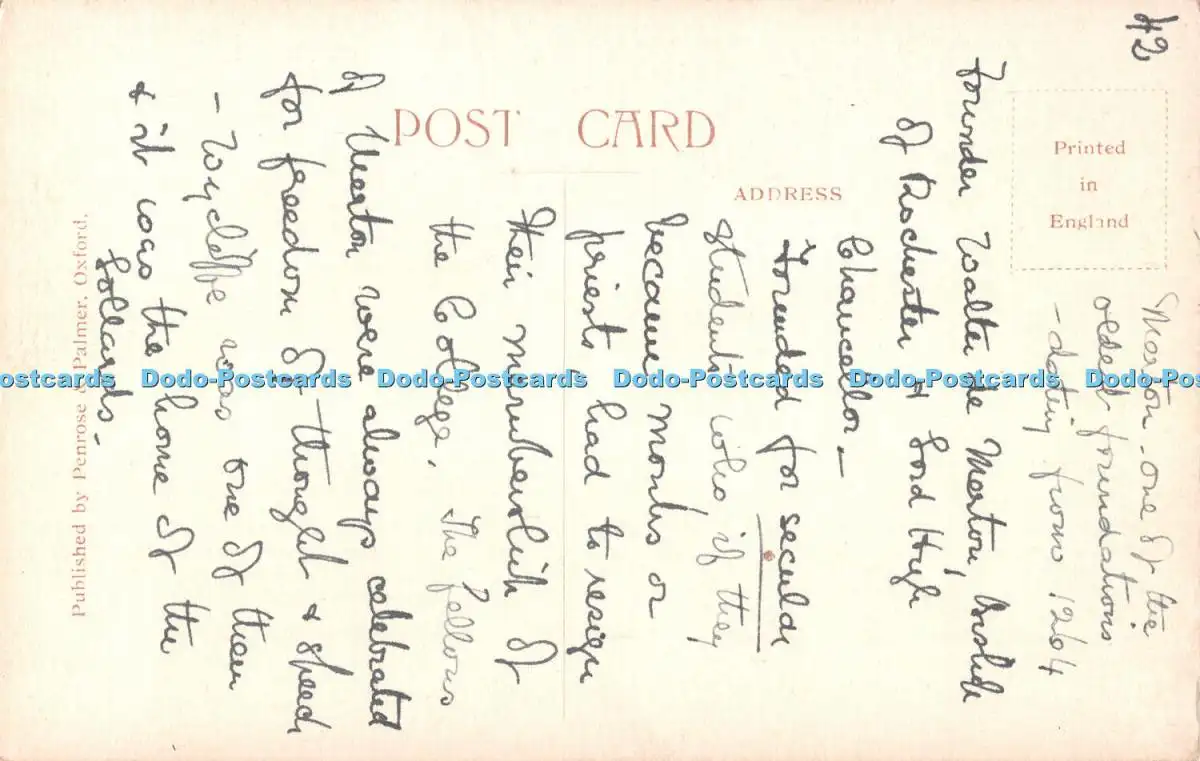 42
POST CARD
ADDRESS
Printed
in
England
Published by Penrose & Palmer, Oxford.
Merton - one of the
oldest foundations
- dating from 1264
Founder Walter de Merton, Bishop
of Rochester & Lord High
Chancellor -
Founded for secular
students who, if they
became monks or
priests had to resign
their membership of
the College. The fellows
of Merton were always celebrated
for freedom of thought & speech
- Wycliffe was one of them
& it was the home of the
Lollards.
ostcards Dodo-Postcards Dodo-Postcards Dodo-Postcards Dodo-Postcards Dodo-